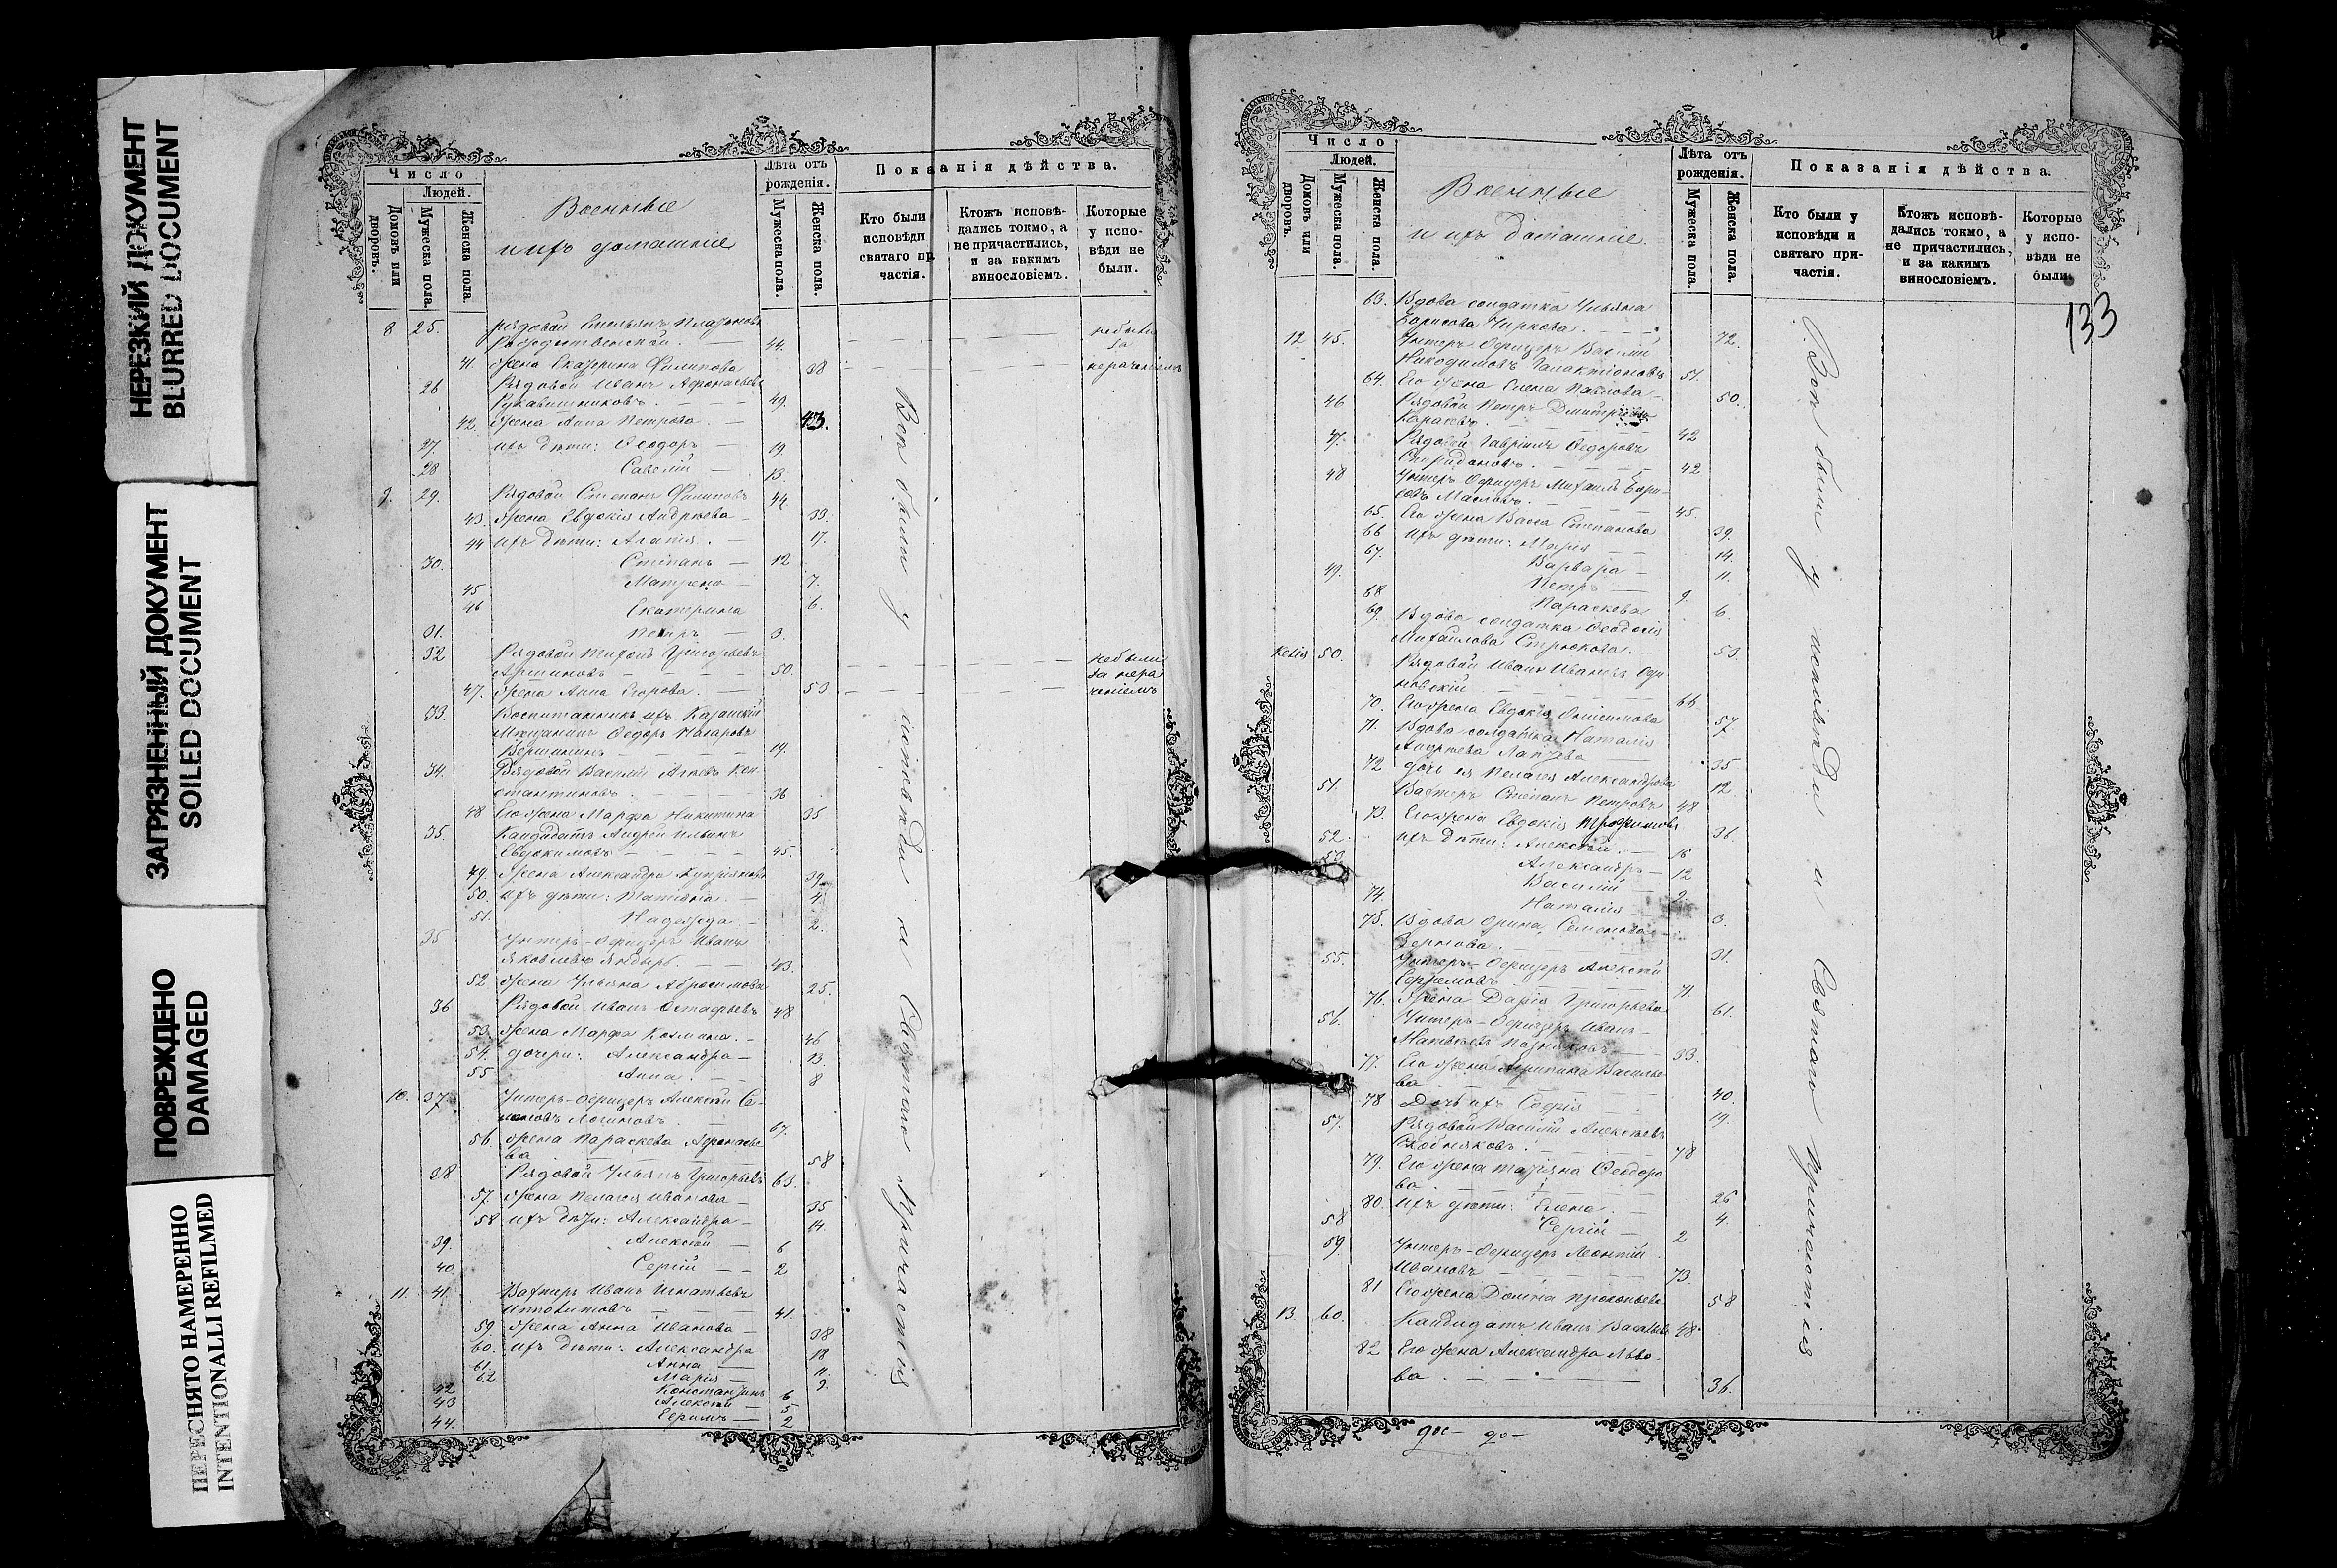 НЕРЕЗКИЙ ДОКУМЕНТ
BLURRED DOCUMENT
ЗАГРЯЗНЕННЫЙ ДОКУМЕНТ
SOILED DOCUMENT
ПОВРЕЖДЕНО
DAMAGED
ПЕРЕСНЯТО НАМЕРЕННО
INTENTIONALLI REFILMED
Число
Людей.
Домовъ или дворовъ.
Мужеска пола.
Женска пола.
Военные
и ихъ домашніе
Лѣта отъ рожденія.
Мужеска пола.
Женска пола.
Показанія дѣйства.
Кто были исповѣди святаго пр частія.
Ктожъ исповѣ-
дались токмо, а
не причастились,
и за какимъ
винословіемъ.
Которые
у испо-
вѣди не
были.
8 25. рядовой Емельянъ
Рождественской. 44. небыли за
41. жена Екатерина Филипова 38 нераченіемъ
26 Рядовой Иванъ Афонасьевъ
Рукавишниковъ. 49.
42. жена Анна Петрова 43.
27. ихъ дѣти: Ѳеодоръ 19
28 Савелій 13.
9. 29. Рядовой Степанъ Филиповъ 44.
43. жена Евдокія Андреева 39.
44 ихъ дѣти: Агапія 17.
30. Степанъ 12
45 Матрена 7.
46 Екатерина 6.
31. Петръ 3.
32 Рядовой Тихонъ Григорьевъ
Аршиновъ 50. небыли
47. жена Анна Егорова. 53 за нера
ченіемъ
33. Воспитанникъ ихъ Казанскій
Мѣщанинъ Ѳеодоръ Назаровъ
Вершининъ 19.
34. Рядовой Василій Агѣевъ Кон-
стантиновъ 36
48 Его жена Марфа Никитина 35
35. Кандидатъ Андрей Ильинъ
Евдокимовъ 45.
49. жена Александра 39
50. ихъ дѣти: Татіана. 4
51. Надежда 2.
35 Унтеръ-Офицеръ Иванъ
Яковлевъ 43.
52 жена Ульяна Абросимова 25.
36 Рядовой Иванъ Остафьевъ 48
53. жена Марфа Козмина. 46
54. дочери: Александра 13.
55 Анна. 8
10. 37. Унтеръ-Офицеръ Алексѣй Се-
меновъ Логиновъ 67.
56. жена Параскева Афонасье-
ва 58
38 Рядовой Ульянъ Григорьевъ 63.
57. жена Пелагея Иванова 35
58 ихъ дѣти: Александра 14.
39. Алексѣй 6
40. Сергій 2
11. 41. Вахтеръ Иванъ Игнатьевъ
Ипполитовъ 41.
59 жена Анна Иванова 38
60. ихъ дѣти: Александра 18
61. Анна 11.
62 Марія 9.
42 Константинъ 6
43 Алексѣй 5
44. Ефимъ 2
Вси были у исповѣди и Святаго Причастія
Число
Людей.
Домовъ или дворовъ.
Мужеска пола.
Женска пола.
Военные
и ихъ домашніе.
Лѣта отъ рожденія.
Мужеска пола.
Женска пола.
Показанія дѣйства.
Кто были у
исповѣди и
святаго при-
частія.
Ктожъ исповѣ-
дались токмо, а
не причастились,
и за какимъ
винословіемъ.
Которые
у испо-
вѣди не
были.
133
63. Вдова солдатка Ульяна
Борисова Чиркова. 72.
12 45. Унтеръ Офицеръ Василій
Никодимовъ Галактіоновъ 51.
64. Его жена Елена Павлова 50.
46 Рядовой Петръ Дмитріевъ
42
47. Рядовой Гавріилъ Ѳедоровъ
Спиридоновъ. 42
48 Унтеръ Офицеръ Михаилъ Бори-
совъ Масловъ. 45.
65. Его жена Васса Степанова 39.
66 ихъ дѣти: Марія 14.
67. Варвара 11.
49. Петръ 9.
68 Параскева 6.
69. Вдова солдатка Ѳеодосія
Михайлова Стрюкова. 53.
50. Рядовой Иванъ Ивановъ
66
70. Его жена Евдокія Онисимова 57
71. Вдова солдатка Наталія
Андреева 35
72 дочь ея Пелагея Александрова 12.
51. Вахтеръ Степанъ Петровъ 48
73. Его жена Евдокія Трофимова 36.
52. ихъ дѣти: Алексѣй. 16
53. Александръ 12
Василій 2.
74. Наталія 3.
75. Вдова Ирина Семенова
31.
55. Унтеръ-Офицеръ Алексѣй
Ефремовъ 71.
76. жена Дарія Григорьева 61.
56. Унтеръ-Офицеръ Иванъ
Матвѣевъ 53.
77. Его жена Агрипина Василье-
ва 40.
78 Дочь ихъ Софія 19.
57. Рядовой Василій Алексѣевъ
48
79. Его жена Татіяна Ѳеодоро-
ва 26
80. ихъ дѣти: Елена 4.
58 Сергій 2
59 Унтеръ-Офицеръ Леонтій
Ивановъ 73.
81 Его жена Домна Прокопьева 58
13 60. Кандидатъ Иванъ Васильевъ 48.
82 Его жена Александра Льво-
ва 36.
Вси были у исповѣди и Святаго Причастія